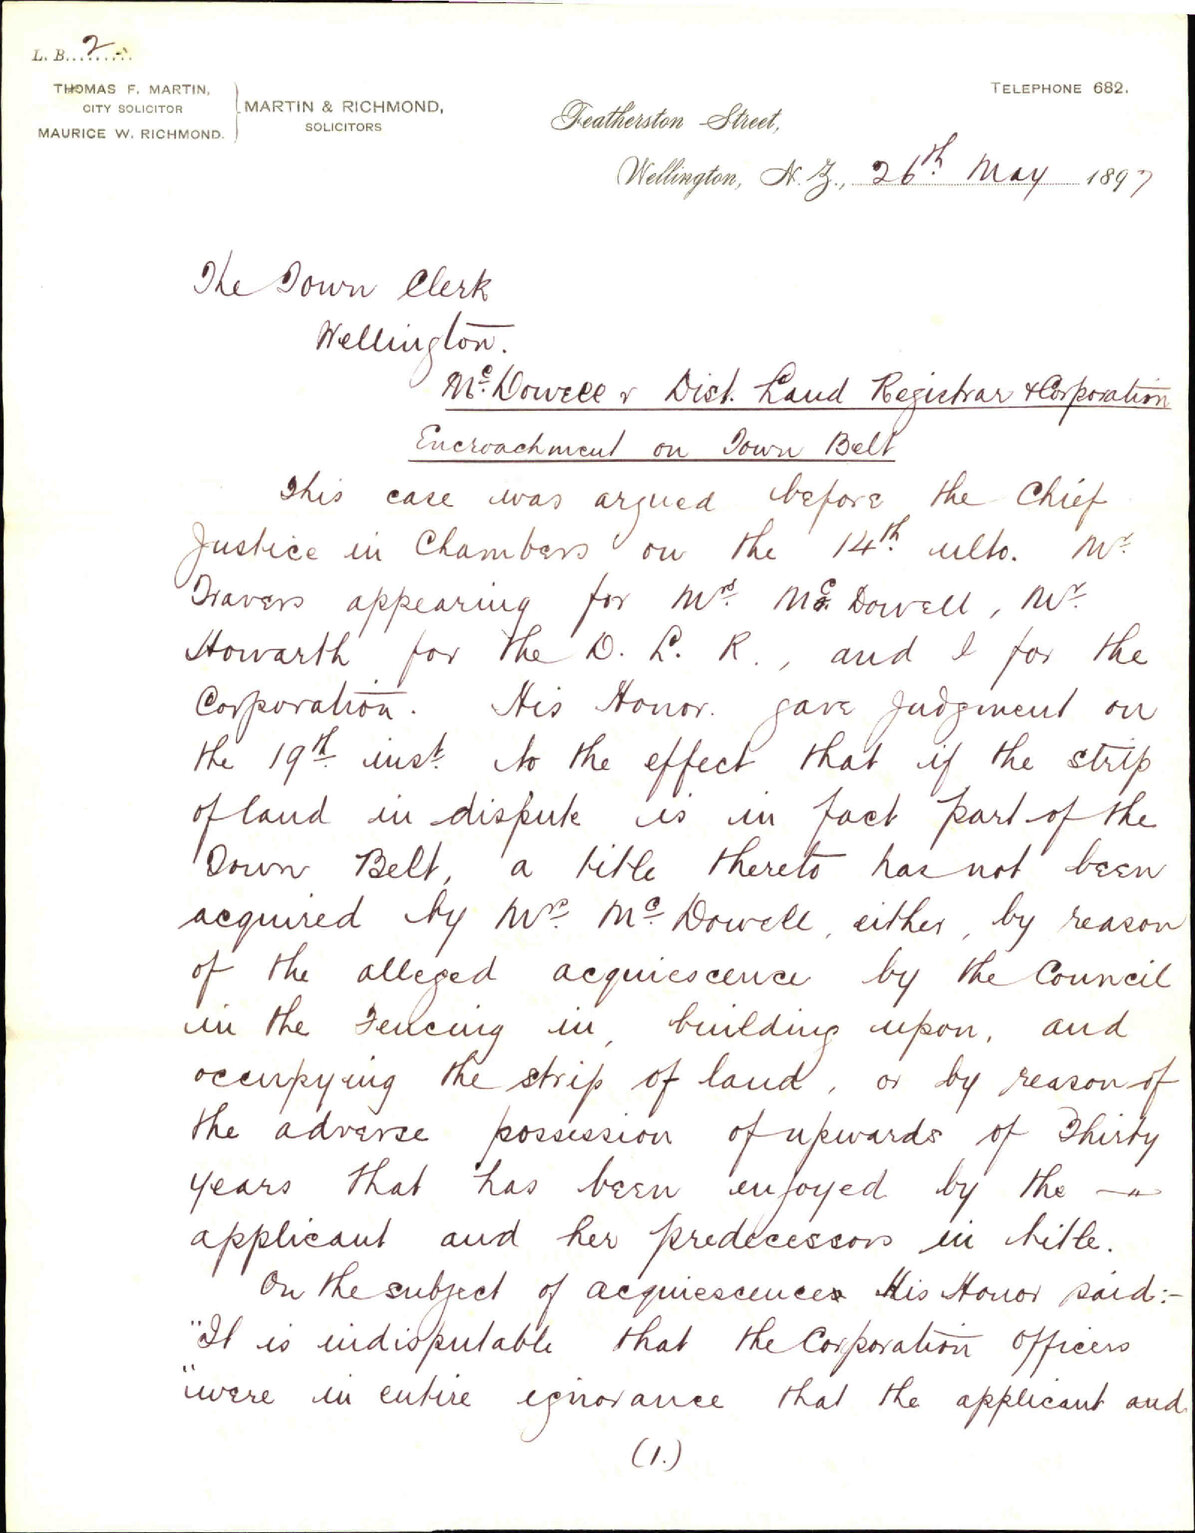 L. B. 2
THOMAS F. MARTIN,
CITY SOLICITOR
MAURICE W. RICHMOND.
MARTIN & RICHMOND,
SOLICITORS
TELEPHONE 682.
Featherston Street,
Wellington, N. Z., 26th May 1897
The Town Clerk
Wellington.
McDowell v Dist. Land Registrar & Corporation
Encroachment on Town Belt
This case was argued before the Chief
Justice in Chambers on the 14th ulto. Mr
Travers appearing for Mrs McDowell, Mr
Howarth for the D. L. R., and I for the
Corporation. His Honor. gave judgment on
the 19th inst. to the effect that if the strip
of land in dispute is in fact part of the
Town Belt, a title thereto has not been
acquired by Mrs McDowell, either, by reason
of the alleged acquiescence by the Council
in the Fencing in, building upon, and
occupying the strip of land, or by reason of
the adverse possession of upwards of Thirty
years that has been enjoyed by the —
applicant and her predecessors in title.
On the subject of acquiescence His Honor said:-
"It is indisputable that the Corporation Officers
"were in entire ignorance that the applicant and
(1.)